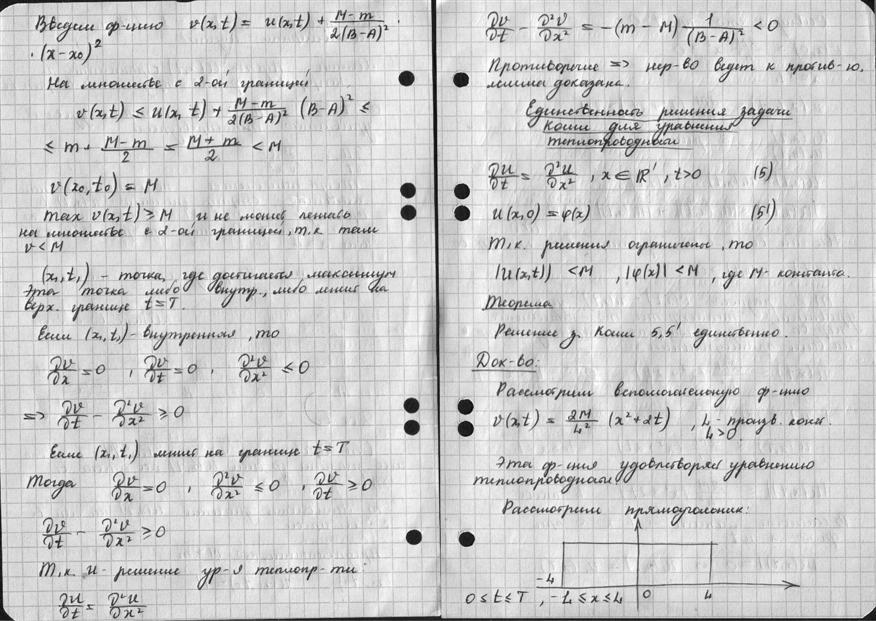 Введем ф-цию v(x,t) = u(x,t) + \frac{M-m}{2(B-A)^2} ·
· (x-x₀)²
На множестве с 2-ой границей
v(x,t) ≤ u(x,t) + \frac{M-m}{2(B-A)^2} (B-A)² ≤
≤ m + \frac{M-m}{2} = \frac{M+m}{2} < M
v(x₀,t₀) = M
max v(x,t) ≥ M и не может лежать
на множестве с 2-ой границей, т.к там
v < M
(x₁,t₁) - точка, где достигается максимум
Эта точка либо внутр., либо лежит на
верх. границе t=T.
Если (x₁,t₁) - внутренняя, то
\frac{∂v}{∂x} = 0 , \frac{∂v}{∂t} = 0 , \frac{∂²v}{∂x²} ≤ 0
=> \frac{∂v}{∂t} - \frac{∂²v}{∂x²} ≥ 0
Если (x₁,t₁) лежит на границе t=T
Тогда \frac{∂v}{∂x} = 0 , \frac{∂²v}{∂x²} ≤ 0 , \frac{∂v}{∂t} ≥ 0
\frac{∂v}{∂t} - \frac{∂²v}{∂x²} ≥ 0
Т.к. u - решение ур-я теплопр-ти:
\frac{∂u}{∂t} = \frac{∂²u}{∂x²}
\frac{∂v}{∂t} - \frac{∂²v}{∂x²} = -(m-M) \frac{1}{(B-A)^2} < 0
Противоречие => нер-во ведет к против-ю,
лемма доказана.
Единственность решения задачи
Коши для уравнения
теплопроводности
\frac{∂u}{∂t} = \frac{∂²u}{∂x²} , x ∈ ℝ¹ , t>0 (5)
u(x,0) = φ(x) (5')
Т.к. решения ограничены, то
|u(x,t)| < M , |φ(x)| < M , где M - константа.
Теорема
Решение з. Коши 5,5' единственно.
Док-во:
Рассмотрим вспомогательную ф-цию
v(x,t) = \frac{2M}{L²} (x²+2t) , L - произв. конст.
L>0
Эта ф-ция удовлетворяет уравнению
теплопроводности
Рассмотрим прямоугольник:
-L
0 ≤ t ≤ T , -L ≤ x ≤ L 0 L